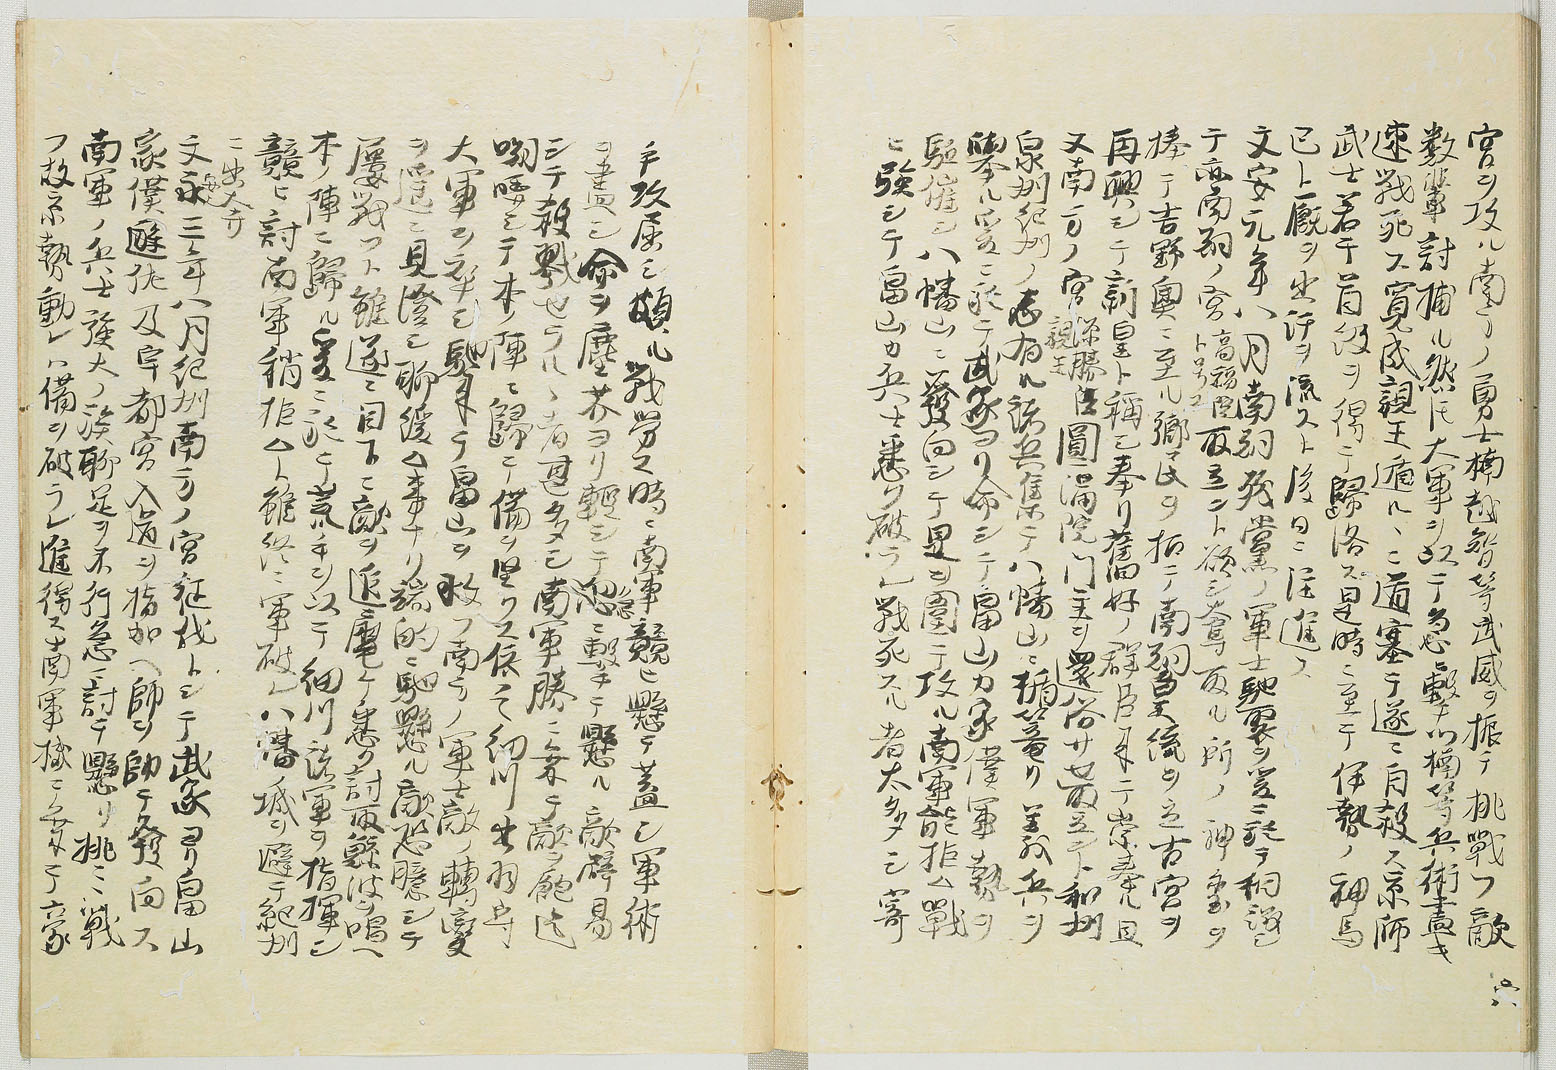 宮ヲ攻ル南方ノ勇士楠越智等武威ヲ振テ挑戰フ敵
数輩討捕ル然レ𪜈大軍ヲ以テ急ニ轂ハ楠等兵術盡キ
速戰死ス寛成親王遁ルヽニ道塞テ遂ニ自殺ス京師
武士若干首級ヲ得テ歸洛ス是時ニ至テ伊勢ノ神馬
已ト厩ヲ出汗ヲ流スト後日ニ注進ス
文安元年八月南朝殘黨ノ軍士馳聚ヲ爰ニ於テ相議シ
テ亦南朝ノ宮高福院ト号ス取立ント欲シ奪取ル所ノ神璽ヲ
捧テ吉野奧ニ至ル郷民ヲ招テ南朝皇統ヲ立古宮ヲ
再興シテ新皇ト稱シ奉リ舊好ノ群臣集テ崇奉ル且
又南方ノ宮源勝親王圓滿院門主ヲ還俗サセ取立ント和州
泉州紀州ノ志有ル諸兵集テ八幡山ニ楯篭リ義兵ヲ
擧ル爰ニ於テ武家ヨリ命シテ畠山カ家僕軍勢ヲ
駈催シ八幡山ニ發向シテ是ヲ圍テ攻ル南軍能拒ム戰
ニ強シテ畠山カ兵士悉ク破ラレ戰死スル者太多シ寄
手攻屈シ頗ル戰労ス時ニ南軍競ヒ懸テ蓋シ軍術
ヲ盡シ命ヲ塵芥ヨリ輕シテ忽ニ擊テ懸ル敵辟易
シテ殺戮セラルヽ者甚多シ南軍勝ニ乘テ敵ヲ飽迄
嘲哢シテ本ノ陣ニ歸テ備ヲ堅クス依テ細川出羽守
大軍ヲ卒シ馳來テ畠山ヲ救フ南方ノ軍士敵ノ轉變
ヲ遥ニ見澄シ聊緩ム事ナリ端的ニ馳懸ル敵恐臆シテ
屢戰フト雖遂ニ目下ニ敵ヲ追麾ケ悉ク討取鯨波ヲ唱ヘ
本ノ陣ニ歸ル爰ニ於テ荒手ヲ以テ細川諸軍ヲ指揮シ
競ヒ討南軍稍拒ムト雖終ニ軍破レ八幡城ヲ避テ紀州
ニ出奔
文永三年八月紀州南方ノ宮征伐トシテ武家ヨリ畠山
家僕遊佐及宇都宮入道ヲ指加ヘ師ヲ帥テ發向ス
南軍ノ兵士強大ノ族聊足ヲ不行急ニ討テ懸リ挑ミ戰
フ故京勢動レハ備ヲ破ラレ進得ス南軍機ニ乘テ豪